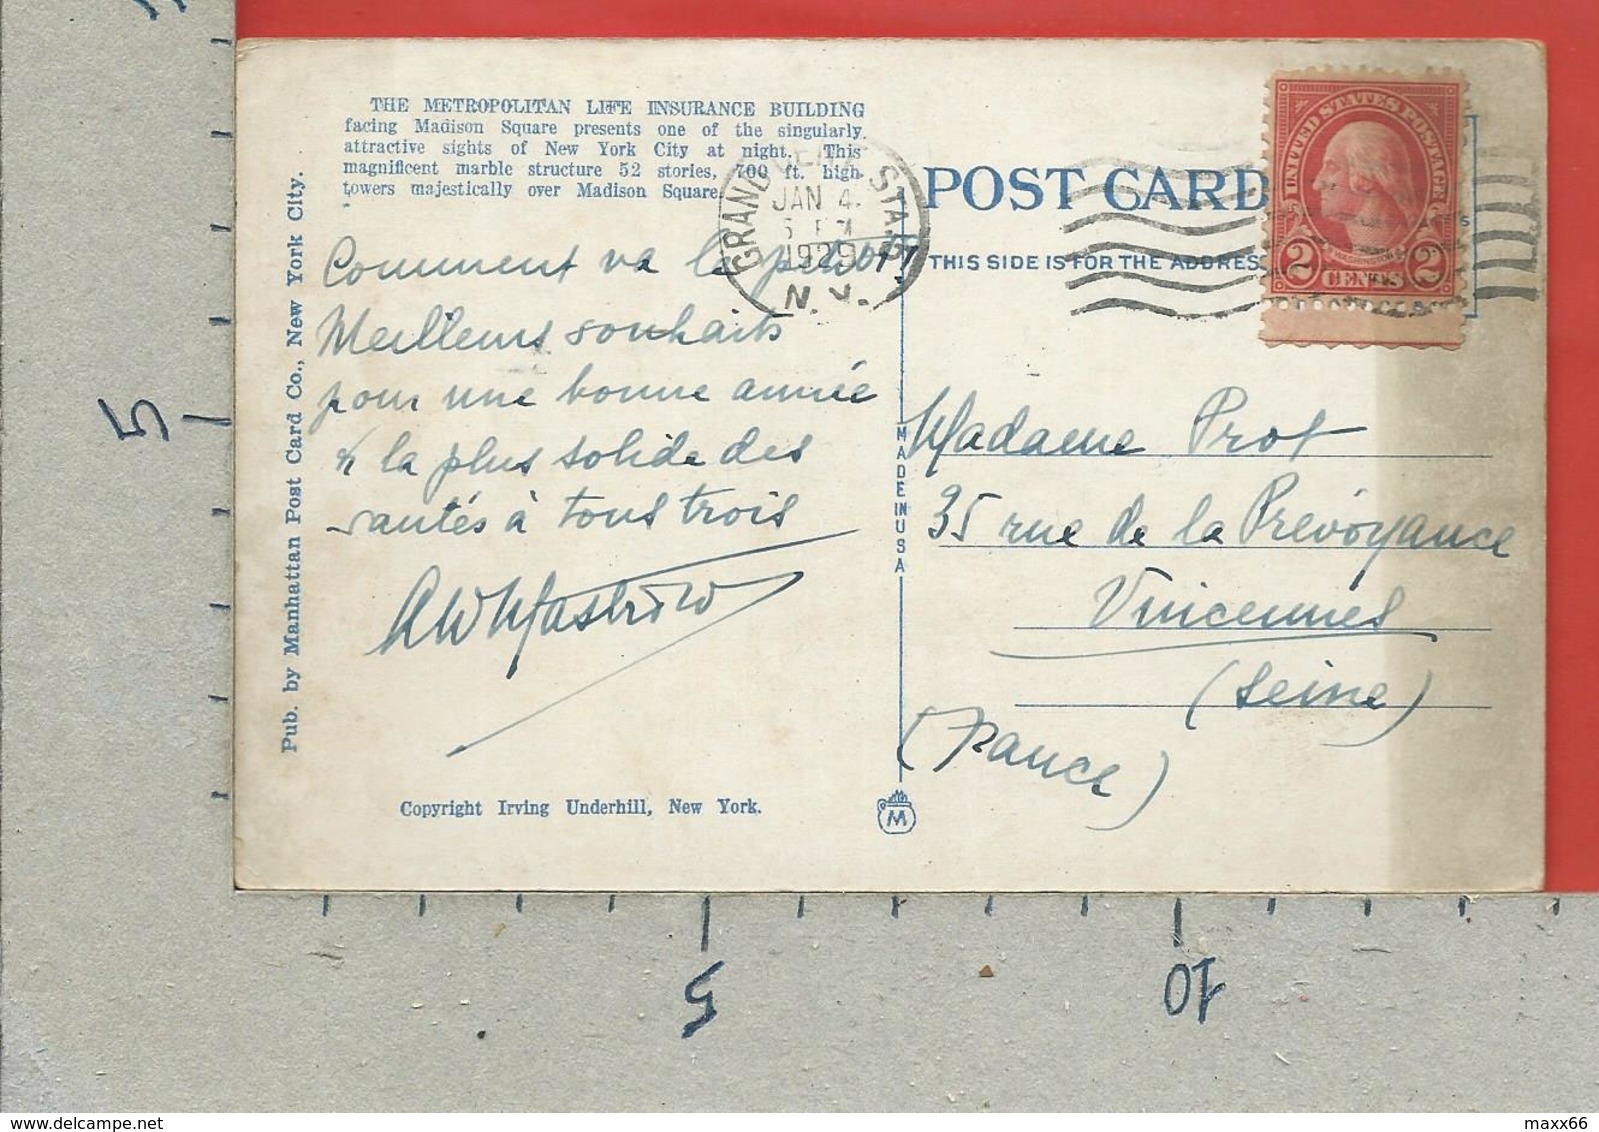 THE METROPOLITAN LIFE INSURANCE BUILDING
facing Madison Square presents one of the singularly
attractive sights of New York City at night. This
magnificent marble structure 52 stories, 700 ft. high
towers majestically over Madison Square.
Pub. by Manhattan Post Card Co., New York City.
Comment va le petit ?
Meilleurs souhaits
pour une bonne année
& la plus solide des
santés à tous trois
Copyright Irving Underhill, New York.
GRAND CENT. STA.
JAN 4
1929
N.Y.
POST CARD
THIS SIDE IS FOR THE ADDRES
MADE IN USA
M
UNITED STATES POSTAGE
2 CENTS 2
Madame Prot
35 rue de la Prévoyance
Vincennes
(Seine)
(France)
5
5
10
maxx66